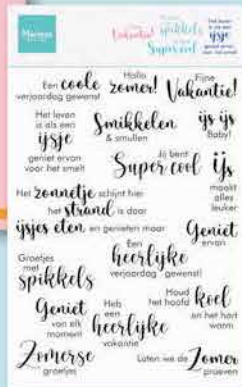 Marianne
Vakantie!
spikkels
Super cool
Het leven
is als een
ijsje
geniet ervan
voor het smelt
Een coole
verjaardag gewenst
Hallo
zomer!
Fijne
Vakantie!
Het leven
is als een
ijsje
geniet ervan
voor het smelt
Smikkelen
& smullen
ijs ijs
Baby!
Jij bent
Super cool
IJs
maakt
alles
leuker
Het zonnetje schijnt hier
het strand is daar
ijsjes eten en genieten maar
Geniet
ervan
Groetjes
met
spikkels
Een
heerlijke
verjaardag gewenst!
Geniet
van elk
moment
Heb
een
heerlijke
vakantie
Houd
het hoofd koel
en het hart
warm
Zomerse
groetjes
Laten we de Zomer
proeven